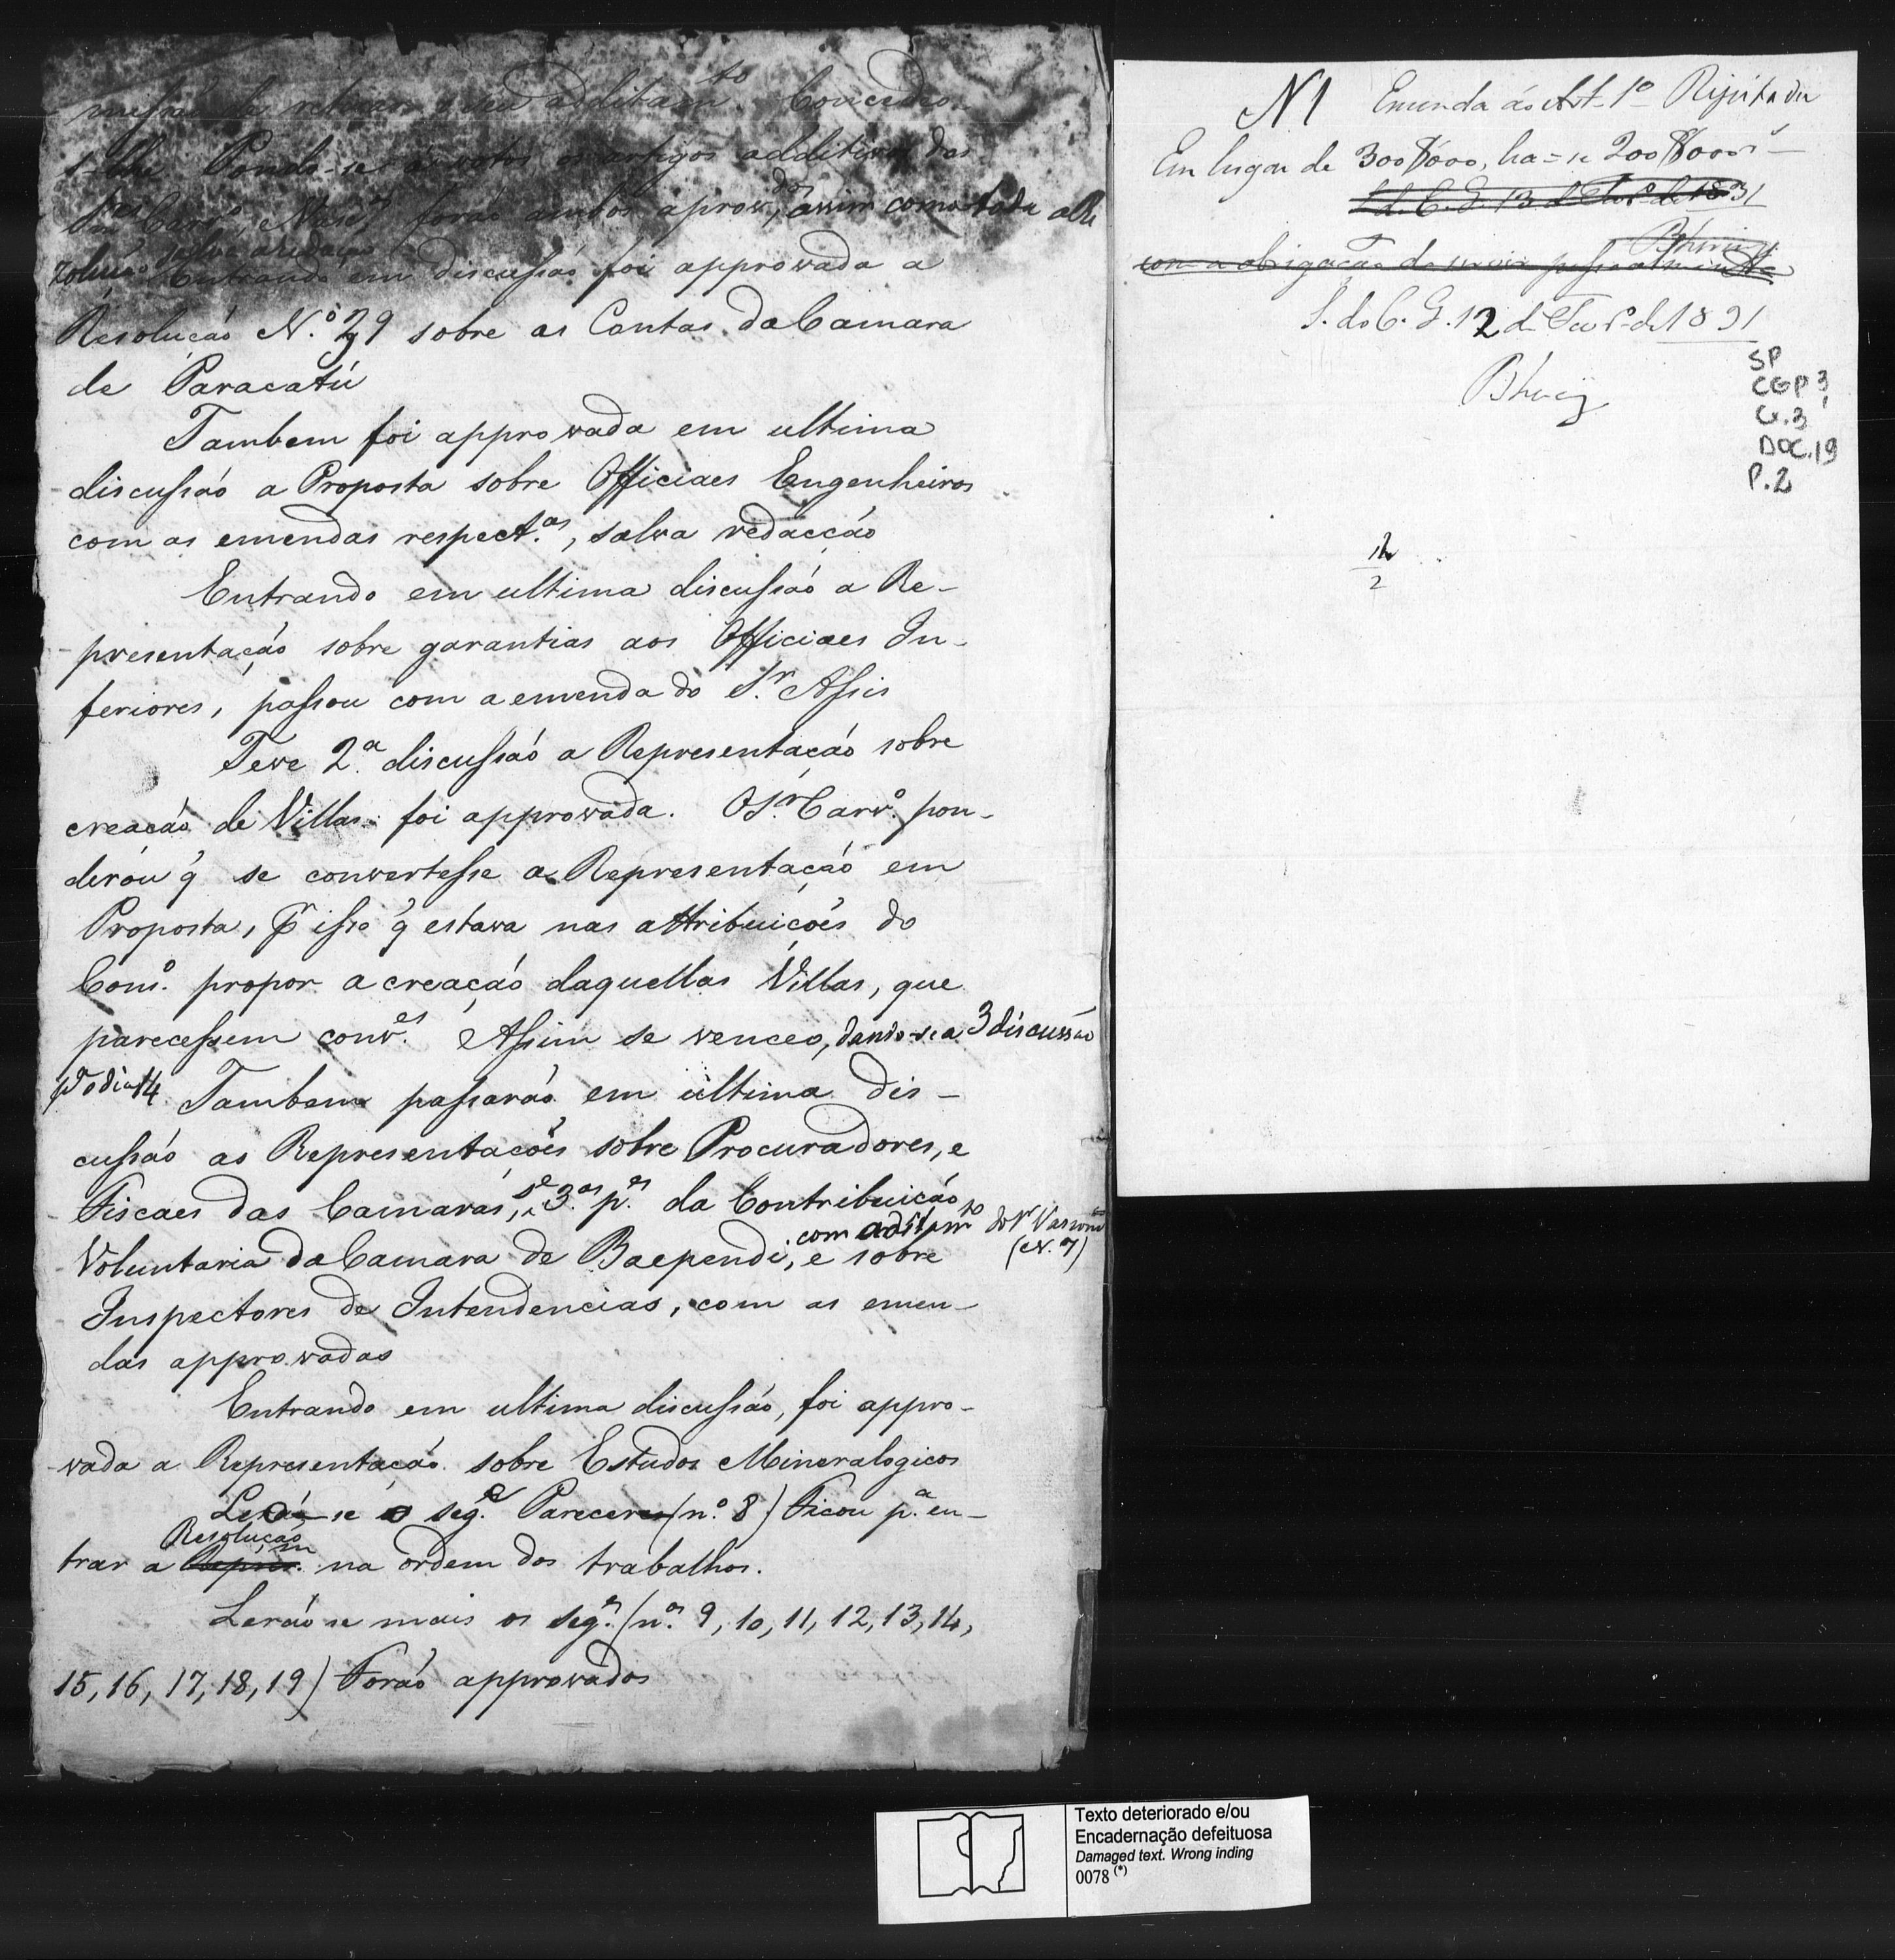 retirar o seu additam.to Concedeo-
s-lhe. Pondo-se a votos os artigos additivos dos
S.res Carv.o, forão ambos aprov.dos, assim como toda a Re
zolução salva a redação
Entrando em discussaõ foi approvada a
Resoluçaõ N.º 29 sobre as Contas da Camara
de Paracatú
Tambem foi approvada em ultima
discussaõ a Proposta sobre Officiaes Engenheiros
com as emendas respect.as, salva redacçaõ
Entrando em ultima discussaõ a Re-
presentaçaõ sobre garantias aos Officiaes In-
feriores, passou com a emenda do S.r Assis
Teve 2.a discussaõ a Representaçaõ sobre
creaçaõ de Villas: foi approvada. O S.r Carv.o pon-
derou q̃ se convertesse a Representaçaõ em
Proposta, pr isso q̃ estava nas attribuiçoẽs do
Cons.o propor a creaçaõ daquellas Villas, que
parecessem conv.es Assim se venceo, dando-se a 3 discussão
pa o dia 14
Tambem passaraõ em ultima dis-
cussaõ as Representaçoẽs sobre Procuradores, e
Fiscaes das Camaras, se 3.as p.es da Contribuiçaõ
com aditam.to do Sr Vasconc.os
(N. 7)
Voluntaria da Camara de Baependi, e sobre
Inspectores de Intendencias, com as emen-
das approvadas
Entrando em ultima discussaõ, foi appro-
vada a Representaçaõ sobre Estudos Mineralogicos
Leo-se o seg.e Parecer (n.º 8) Ficou p.a en-
Resoluçaõ
trar a Repres.m na ordem dos trabalhos.
Leraõ se mais os seg.es (n.os 9, 10, 11, 12, 13, 14,
15, 16, 17, 18, 19) Foraõ approvados
N 1 Emenda ao Art. 1º Rijeitada
Em lugar de 300$000, lea-se 200$000rs
S. do C. G. 13 de Fevº de 1831
Bhering
com a obrigaçaõ de servir pessoalmente
S. do C. G. 12 de Fevº de 1831
Bhering
SP
CGP 3
Cx. 3
DOC. 19
P. 2
2
Texto deteriorado e/ou
Encadernação defeituosa
Damaged text. Wrong inding
0078 (*)